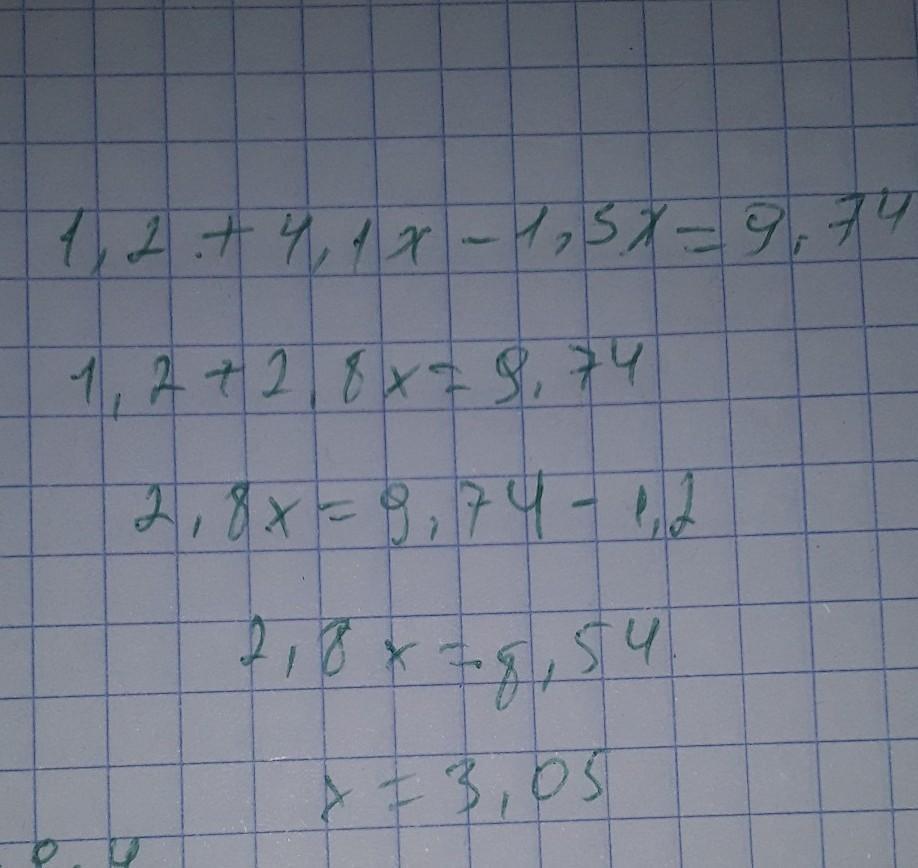 1,2 + 4,1x - 1,3x = 9,74
1,2 + 2,8x = 9,74
2,8x = 9,74 - 1,2
2,8x = 8,54
x = 3,05